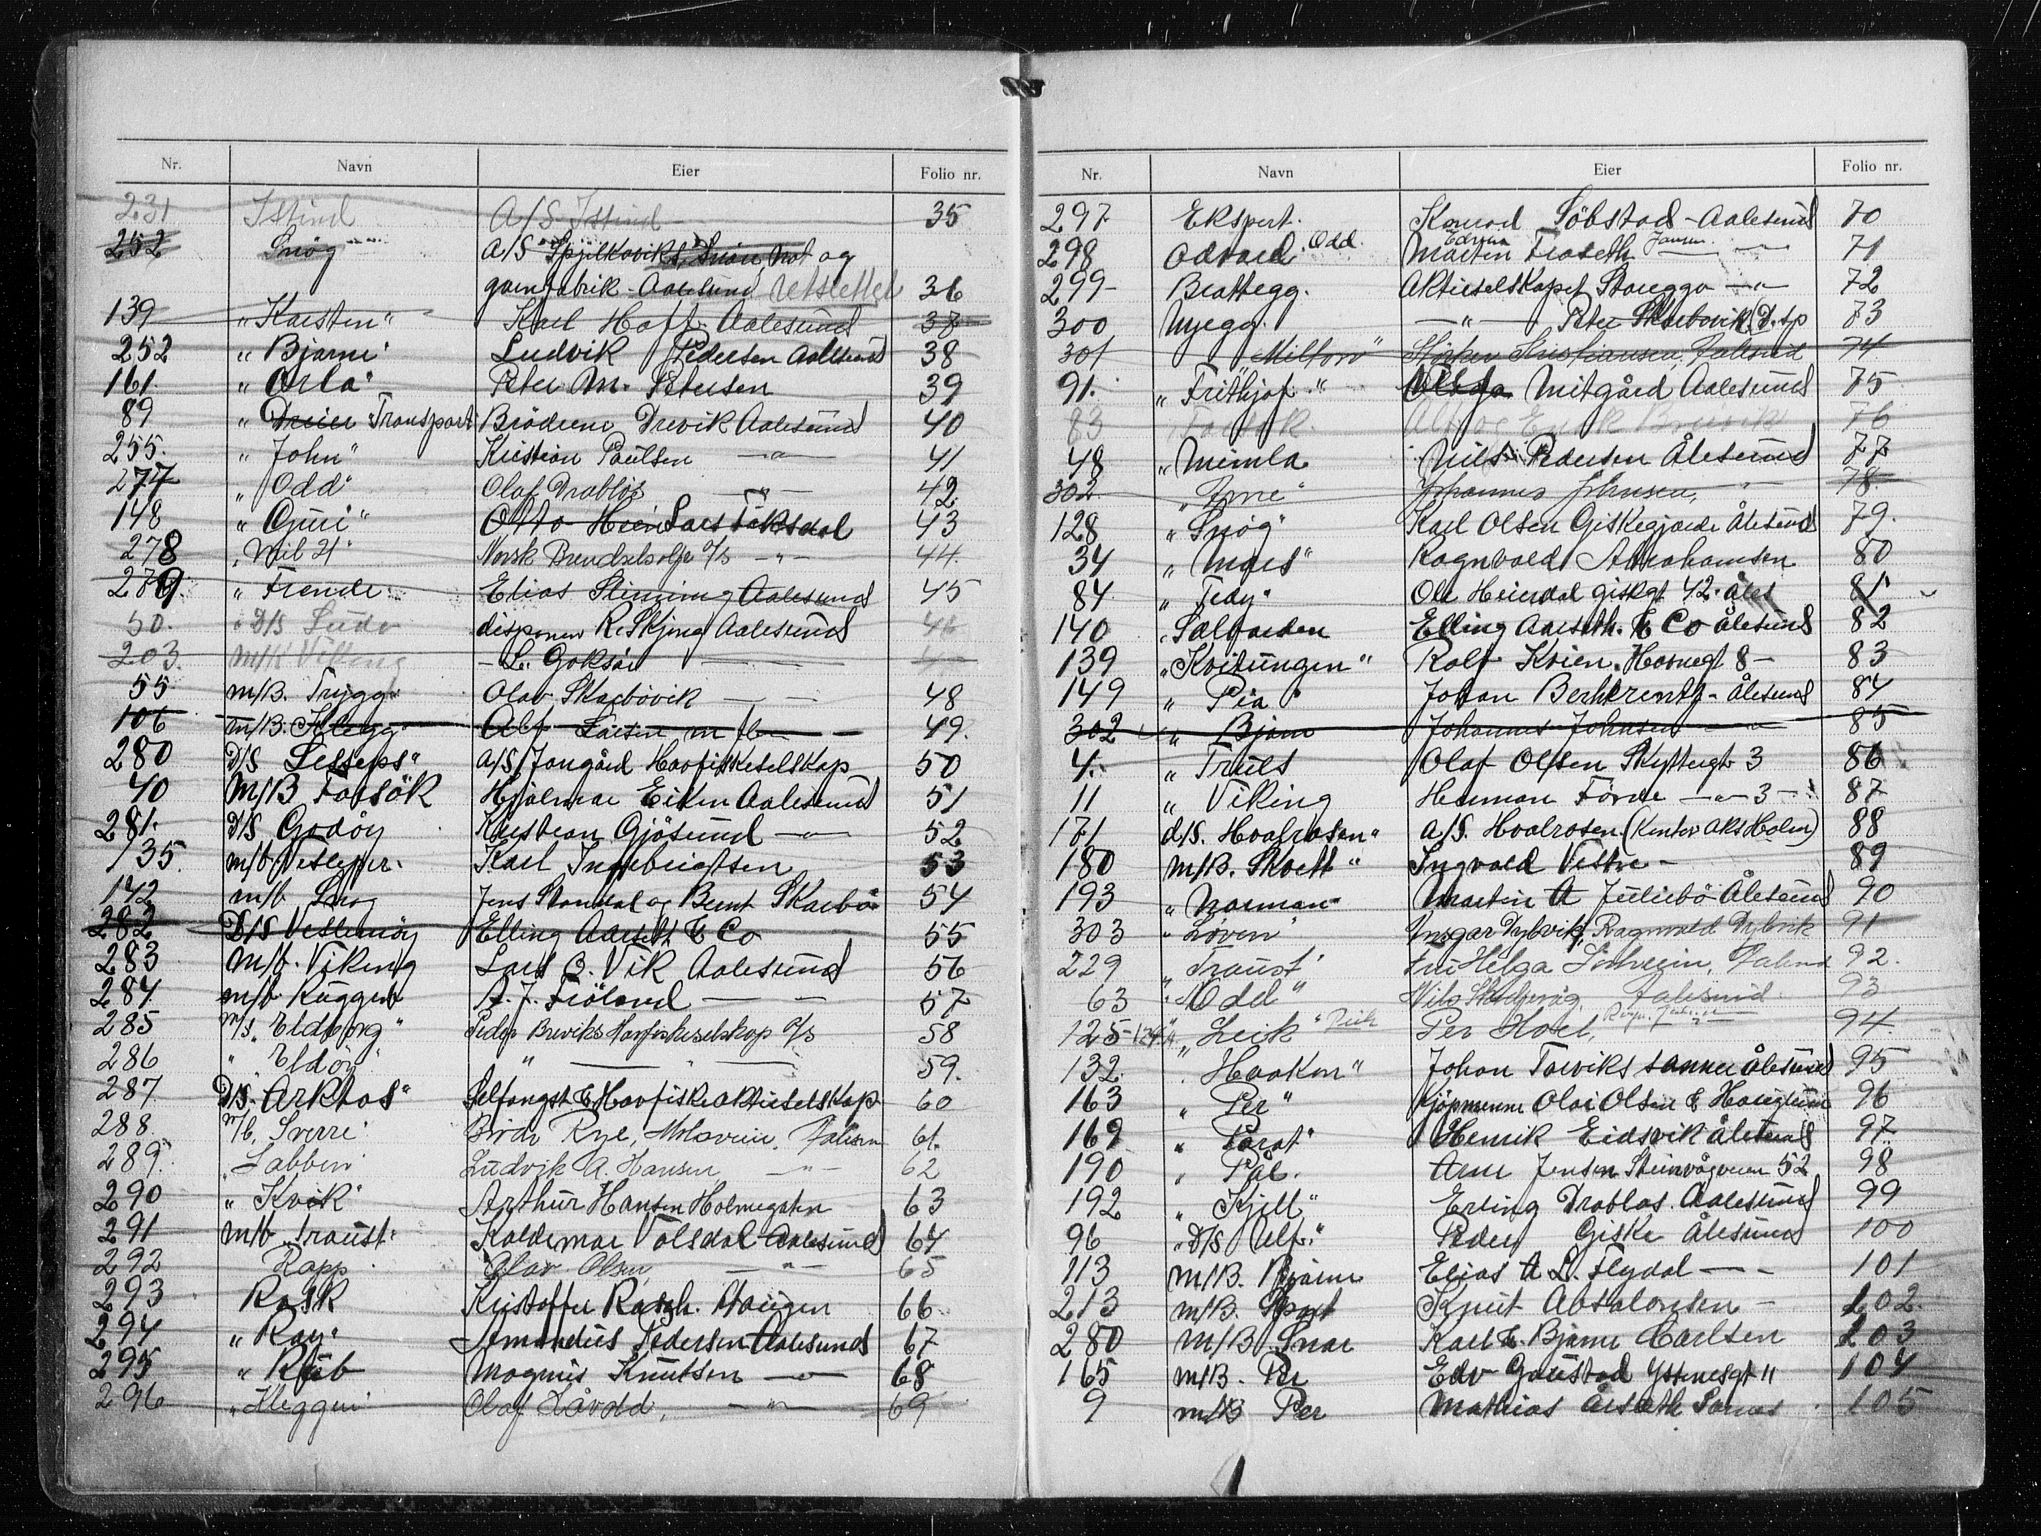 Nr. Navn Eier Folio nr.
231 Istind A/S Istind 35
252 Snøg A/S Spjelkaviks Snøre Not og
garnfabrik - Aalesund Utslettet 36
139 "Karsten" Karl Hoff Aalesund 37
252 "Bjarne" Ludvik Pedersen Aalesund 38
161. "Orla" Peter M. Petersen 39
89 " Transport Brødrene Drevik Aalesund 40
255. "John" Kristian Paulsen —"— 41
277 "Odd" Olaf Drabløs —"— 42
148 "Guri" Otto Lars Taksdal 43
278 "Mil 21" Norsk Brendselsolje A/S —"— 44.
279 "Frende" Elias Slinning Aalesund 45
50. " D/S disponen R. Skjong Aalesund 46
203. M/K Viking L. Goksör — —
55 m/B. Trygg Olav Skarbövik — — 48
106 m/B. Hlegg Alf Larsen m fl. — 49.
280 D/S Lesseps" A/S Jangård Havfiskeselskap 50
40 M/B Forsök Hjalmar Eiken Aalesund 51
281. D/S Godøy Kristian Gjösund —"— 52
135. m/b Vesleper. Karl Ingebrigtsen 53
142 m/b Snog Jens Standal og Bernt Skarbö 54
282 D/S Veslemöy Elling Aarseth & Co 55
283 M/b. Viking Lars B. Vik Aalesund 56
284. m/b Ruggen A. J. Fröland — — 57
285 M/S. "Eldborg" Peder Breviks Havfiskeselskap A/S 58
286 " Eldøy " — " — 59.
287. D/S. "Arktos" Selfangst & Havfiske aktieselskap 60
288. M/b. Sverre Brödr Rye, 61.
289. "Labben" Ludvik A. Hansen —"— 62
290 "Kvik" Arthur Hansen Holmegaten 63
291 m/b Traust Valdemar Volsdal Aalesund 64
292 Rapp Olav Olsen —"— 65
293 Rask Kristoffer Rasch. Haugen 66
294 "Ray" Amandus Pedersen Aalesund 67
295 " Rub Magnus Knutsen —"— 68
296 "Kleggen" Olaf Låvdd, —"— 69
Nr. Navn Eier Folio nr.
297. Ekspert. Konrad Söbstad - Aalesund 70
298 Odvard. Odd. Martin Edvin Froseth Jansen —"— 71
299 Brattegg. Aktieselskapet Storeggo —"— 72
300 Nyegg. —"— Peter Skarbövik, Disp 73
301 "Milton" Störker Kristiansen, Aalesund 74
91. "Frithjof" Olga Mitgård Aalesund 75
83 Forsök. Alf og Brevik 76
48 "Mimla Nils Pedersen Ålesund 77
302 "Arne" Johannes Johnsen, " 78
128 "Snøg" Karl Olsen Giskegjerde Ålesund 79.
34 "Mars" Ragnvald Abrahamsen 80
84 "Tedy" Ole Heirdal giskgt 42. Åles 81.
140 "Salforden Elling Aarseth & Co Ålesund 82
139 "Kvitungen" Rolf Kvien. Havnegt 8 - 83
149 "Pia" Johan Berentz - Ålesund 84
302 " Bjørn Johannes Johnsen — 85
4. " Truls Olaf Olsen Skyttergt 3 86
11 " Viking Herman Förde —"— 3 - 87
171 d/S. Hvalrosen" A/S. Hvalrosen. (Kontor Aks Holm) 88
180 M/B. Skvett" Ingvald Vestre - 89
193 " Norman" Martin A Juliebö Ålesund 90
303 " Løven" Ansgar Dybvik, Ragnvald Dybvik 91
229 "Traust" Fru Helga 92.
63 "Odd" Nils Aalesund 93
125-124 "Leik" Per Hoel, 94.
132. "Haakon" Johan Torviks sønner Ålesund 95
163 "Per" Kjöpmenne Olai Olsen & Hauglum 96
169 "Parat" Henrik Eidsvik Ålesund 97.
190 " Pål. Arne Jensen Steinvågveien 52 98
192 "Kjell" Erling Drablos Aalesund 99
96 "D/S Ulf." Peder Giske Ålesund 100
113 M/B. Bjarne Elias A L. Flydal — - 101
213 M/B. Spurt Knut Absalonsen - 102.
280 M/B Snar Karl & Bjarne Carlsen 103
165 M/B. Per Edv Gaustad Ystenesgt 11 104
9 m/B Per Mathias Årseth 105